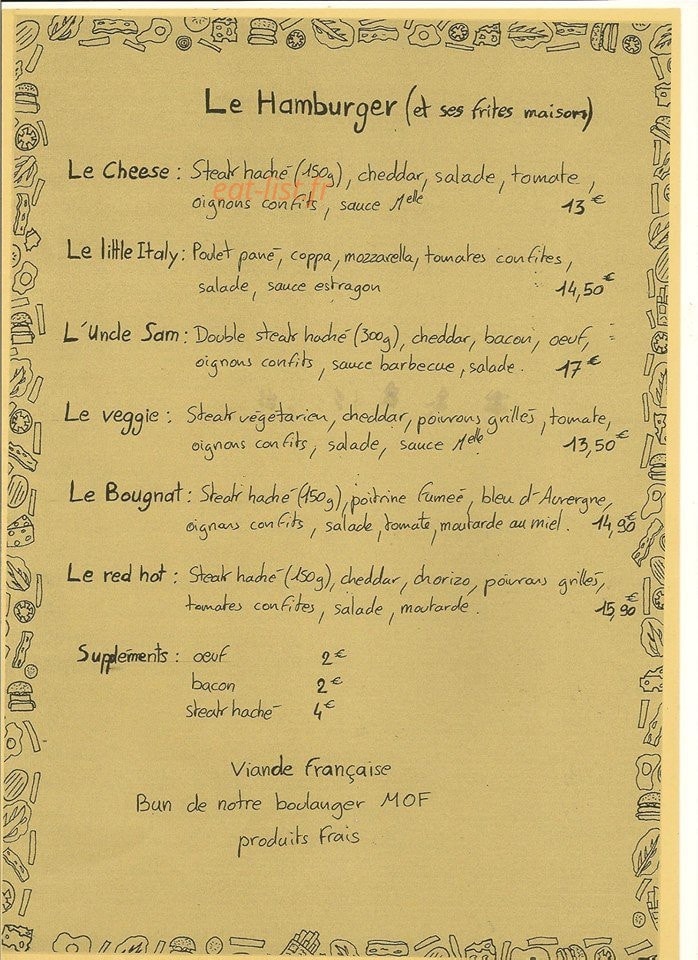 Le Hamburger (et ses frites maison)
Le Cheese : Steak haché (150g), cheddar, salade, tomate,
eat-list.fr
oignons confits, sauce Melle 13€
Le little Italy : Poulet pané, coppa, mozzarella, tomates confites,
salade, sauce estragon 14,50€
L'Uncle Sam : Double steak haché (300g), cheddar, bacon, oeuf,
oignons confits, sauce barbecue, salade. 17€
Le veggie : Steak végétarien, cheddar, poivrons grillés, tomate,
oignons confits, salade, sauce Melle. 13,50€
Le Bougnat : Steak haché (150g), poitrine fumeé, bleu d'Auvergne,
oignons confits, salade, tomate, moutarde au miel. 14,90€
Le red hot : Steak haché (150g), cheddar, chorizo, poivrons grillés,
tomates confites, salade, moutarde. 15,90€
Suppléments : oeuf 2€
bacon 2€
steak haché 4€
Viande Française
Bun de notre boulanger MOF
produits frais